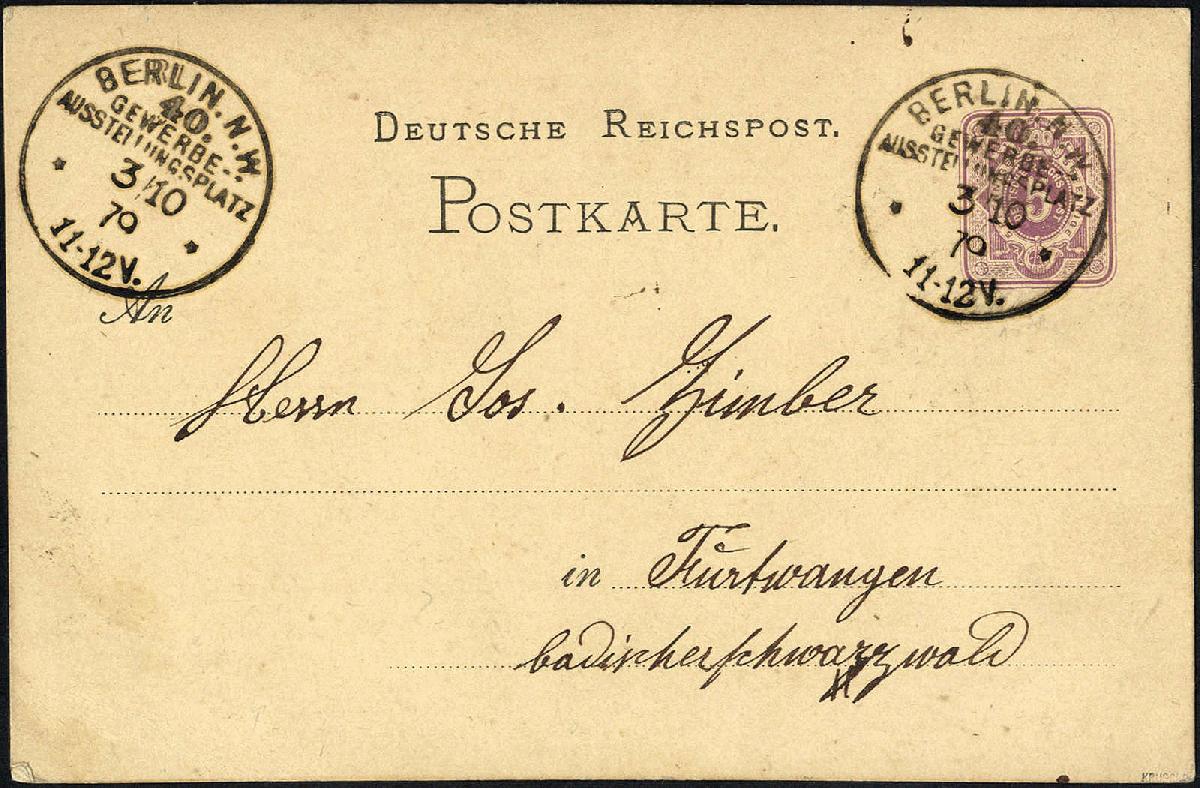 BERLIN. N.W.
40.
GEWERBE-
AUSSTELLUNGSPLATZ
3/10
79
11-12V.
DEUTSCHE REICHSPOST.
POSTKARTE.
BERLIN. N.W.
40.
GEWERBE-
AUSSTELLUNGSPLATZ
3/10
79
11-12V.
5
An
Herrn Jos. Zimber
in Fŭrtwangen
badischerschwarzwald